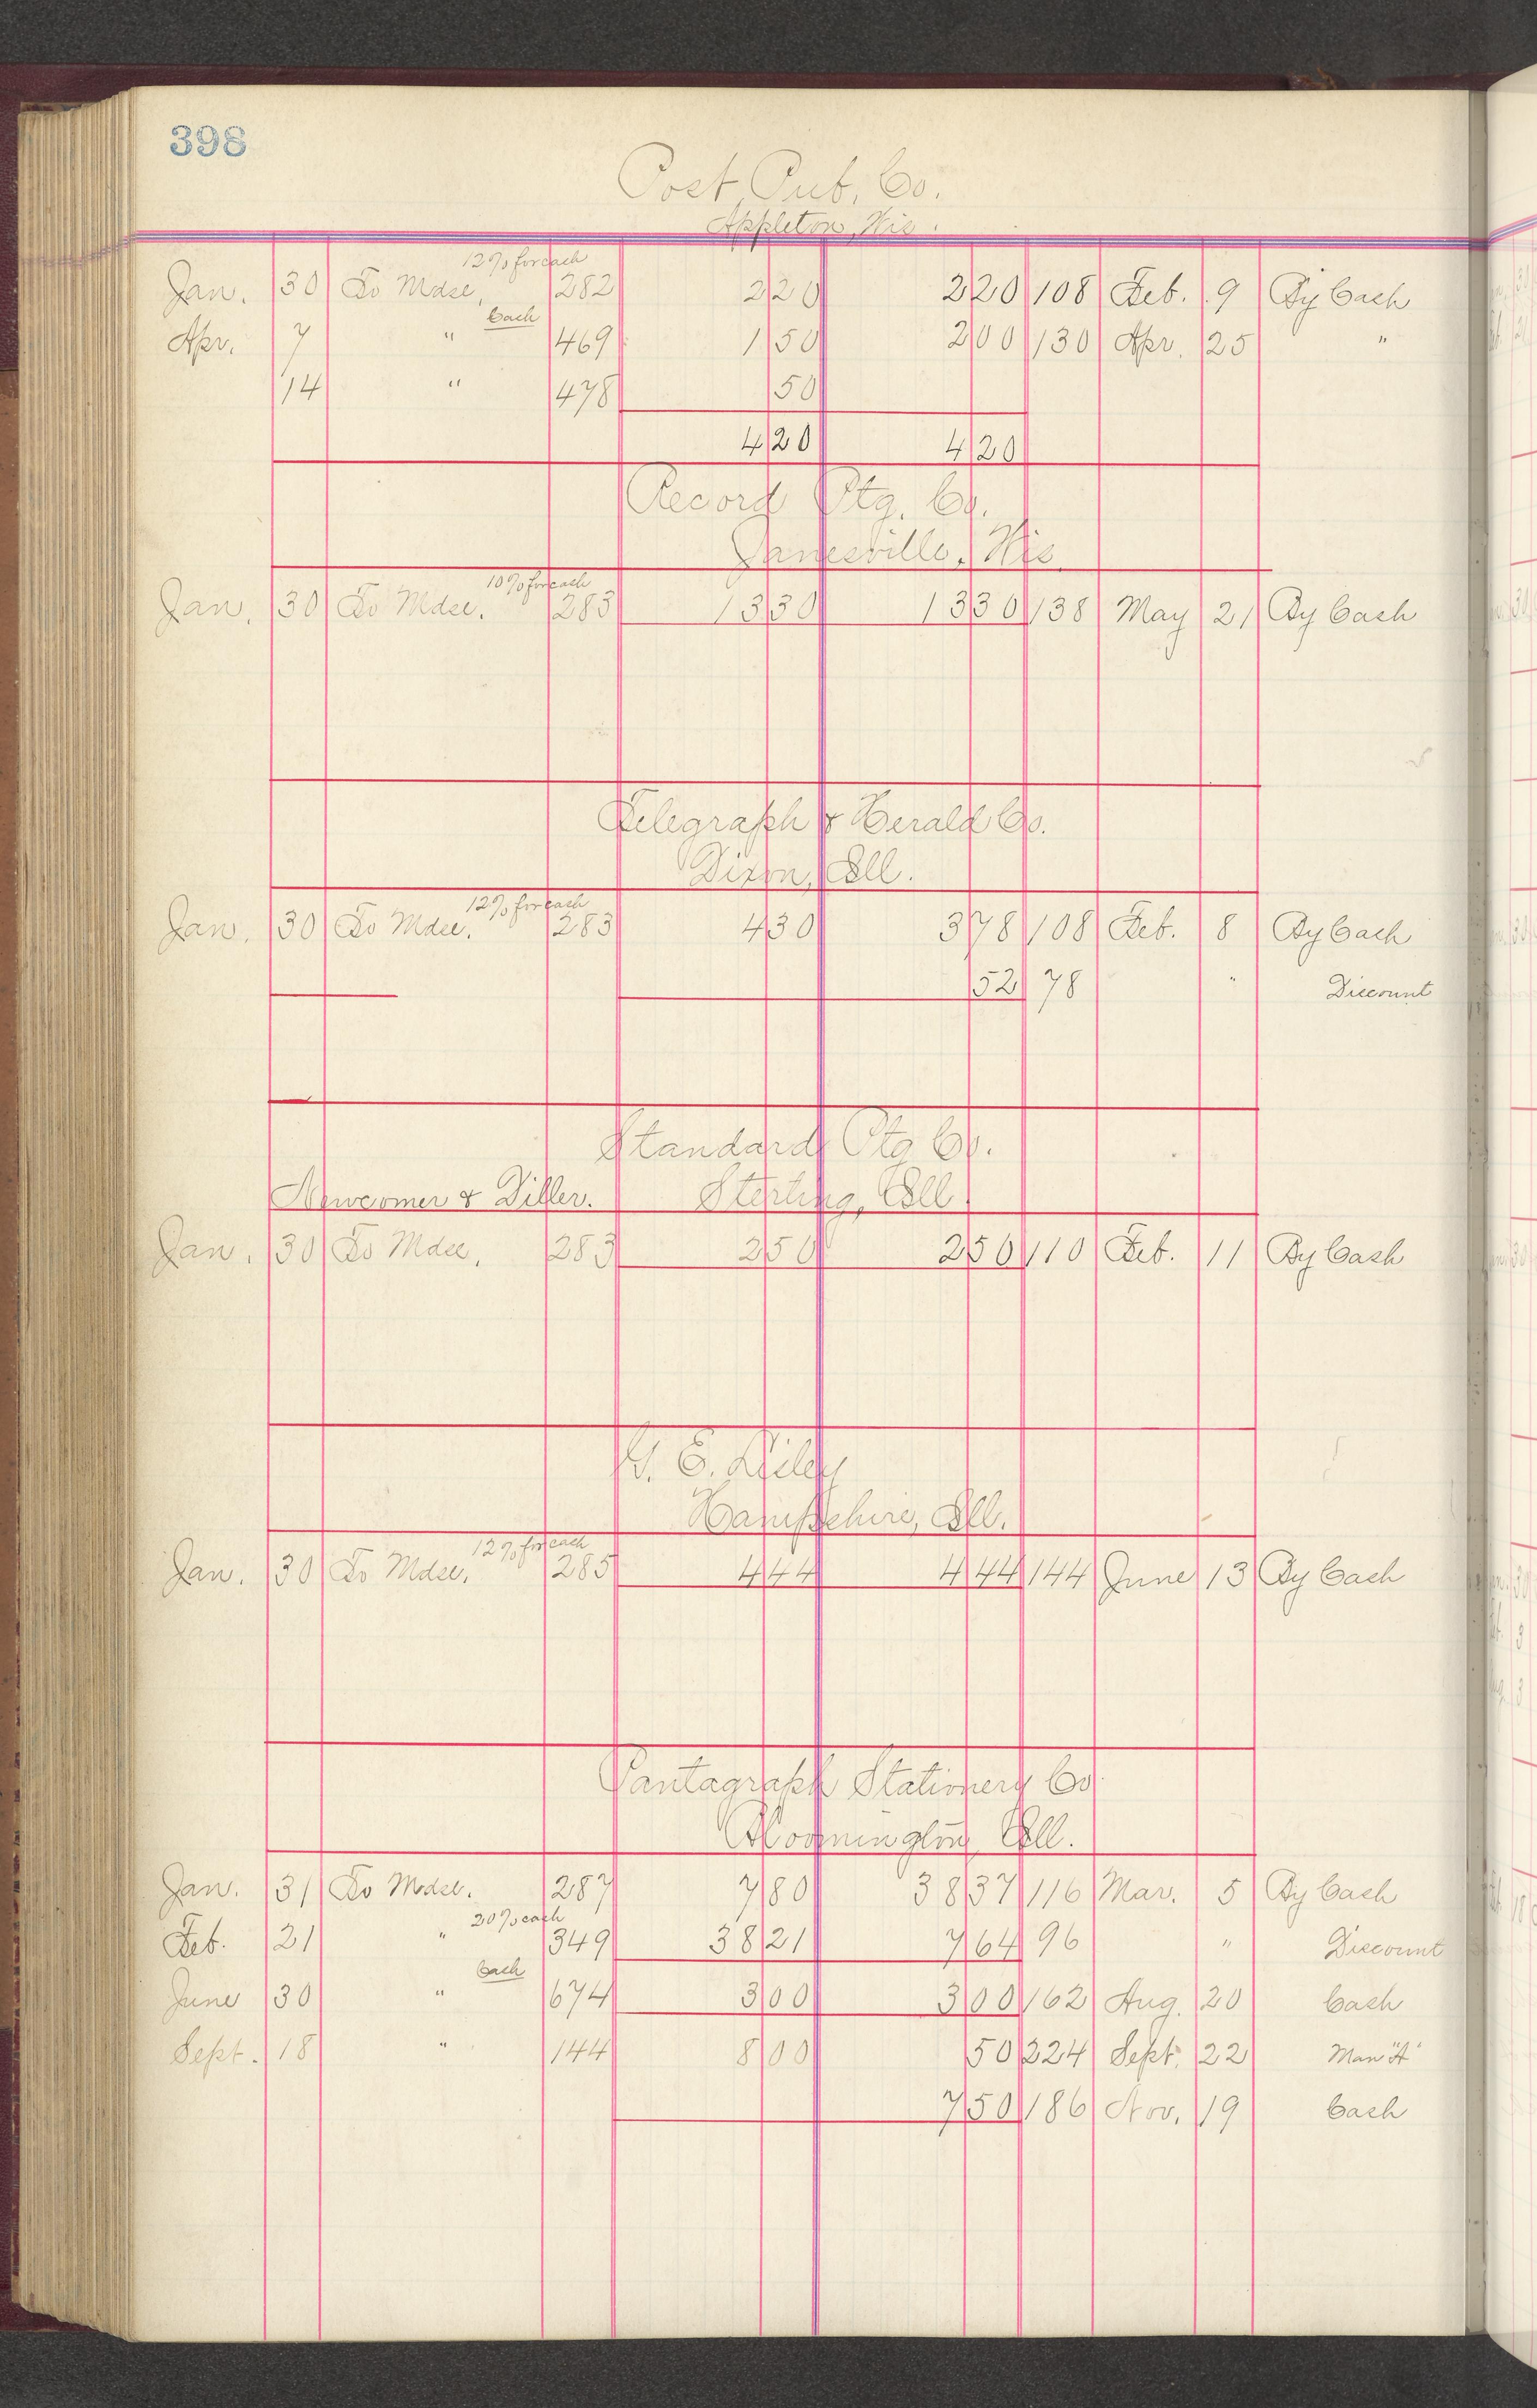 398
Post Pub. Co.
Appleton, Wis.
12% for cash
Jan. 30 To Mdse. 282 2 20 2 20 108 Feb. 9 By Cash
Cash
Apr. 7 " 469 1 50 2 00 130 Apr. 25 "
14 " 478 50
4 20 4 20
Record Ptg. Co.
Janesville, Wis.
10% for cash
Jan. 30 To Mdse. 283 13 30 13 30 138 May 21 By Cash
Telegraph & Herald Co.
Dixon, Ill.
12% for cash
Jan. 30 To Mdse. 283 4 30 3 78 108 Feb. 8 By Cash
52 78 " Discount
Standard Ptg Co.
Newcomer & Diller. Sterling, Ill.
Jan. 30 To Mdse. 283 2 50 2 50 110 Feb. 11 By Cash
E. Riley
Hampshire, Ill.
12% for cash
Jan. 30 To Mdse. 285 4 44 4 44 144 June 13 By Cash
Pantagraph Stationery Co
Bloomington, Ill.
Jan. 31 To Mdse. 287 7 80 38 37 116 Mar. 5 By Cash
20% cash
Feb. 21 " 349 38 21 7 64 96 " Discount
Cash
June 30 " 674 3 00 3 00 162 Aug. 20 Cash
Sept. 18 " 144 8 00 50 224 Sept. 22 Man "A"
7 50 186 Nov. 19 Cash